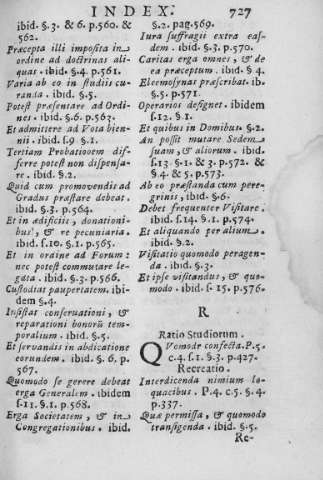 INDEX.
727
ibid. §. 3. & 6. p. 560. &
562.
Præcepta illi imposita in
ordine ad doctrinas ali-
quas. ibid. §. 4. p. 561.
Varia ab eo in studiis cu-
randa. ibid. §. 5.
Potest præsentare ad Ordi-
nes. ibid. §. 6. p. 563.
Et admittere ad Vota bien-
nii. ibid. ſ.9 §. 1.
Tertiam Probationem dif-
ferre potest non dispensa-
re. ibid. §. 2.
Quid cum promovendis ad
Gradus præstare debeat.
ibid. §. 3. p. 564.
Et in ædificiis, donationi-
bus, & re pecuniaria.
ibid. ſ. 10. §. 1. p. 565.
Et in ordine ad Forum:
nec potest commutare le-
gata. ibid. §. 3. p. 566.
Custodiat paupertatem. ibi-
dem §. 4.
Insistat conservationi, &
reparationi bonorũ tem-
poralium. ibid. §. 5.
Et servandis in abdicatione
eorundem. ibid. §. 6. p.
567.
Quomodo se gerere debeat
erga Generalem. ibidem
ſ. 11. §. 1. p. 568.
Erga Societatem, & in
Congregationibus. ibid.
§. 2. pag. 569.
Iura suffragii extra eas-
dem. ibid. §. 3. p. 570.
Caritas erga omnes, & de
ea præceptum. ibid. § 4.
Eleemosynas præscribat. ib.
§. 5. p. 571.
Operarios designet. ibidem
ſ. 12. §. 1.
Et quibus in Domibus §. 2.
An possit mutare Sedem
suam, & aliorum. ibid.
ſ. 13. §. 1. & 3. p. 572. &
§. 4. & 5. p. 573.
Ab eo præstanda cum pere-
grinis, ibid. §. 6.
Debet frequenter Visitare.
ibid. ſ. 14. §. 1. p. 574.
Et aliquando per alium.
ibid. §. 2.
Visitatio quomodo peragen-
da. ibid. §. 3.
Et ipse visitandus, & quo-
modo. ibid. ſ. 15. p. 576.
R
Ratio Studiorum.
Quomodo confecta. P. 5.
c. 4. ſ. 1. §. 3. p. 427.
Recreatio.
Interdicenda nimium lo-
quacibus. P. 4. c. 5. §. 4.
p. 337.
Quæ permissa, & quomodo
transigenda. ibid. §. 5.
Re-